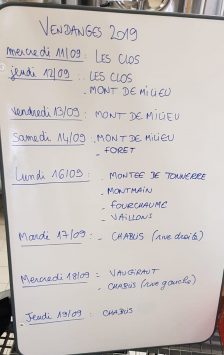 VENDANGES 2019
mercredi 11/09 : LES CLOS
jeudi 12/09 : LES CLOS
MONT DE MILIEU
Vendredi 13/09 : MONT DE MILIEU
Samedi 14/09 : - MONT DE MILIEU
- FORET
Lundi 16/09 : - MONTEE DE TONNERRE
- MONTMAIN
- FOURCHAUME
- VAILLONS
Mardi 17/09 : - CHABUS (rive droite)
Mercredi 18/09 : - VAUGRAUT
- CHABUS (rive gauche)
Jeudi 19/09 : CHABUS